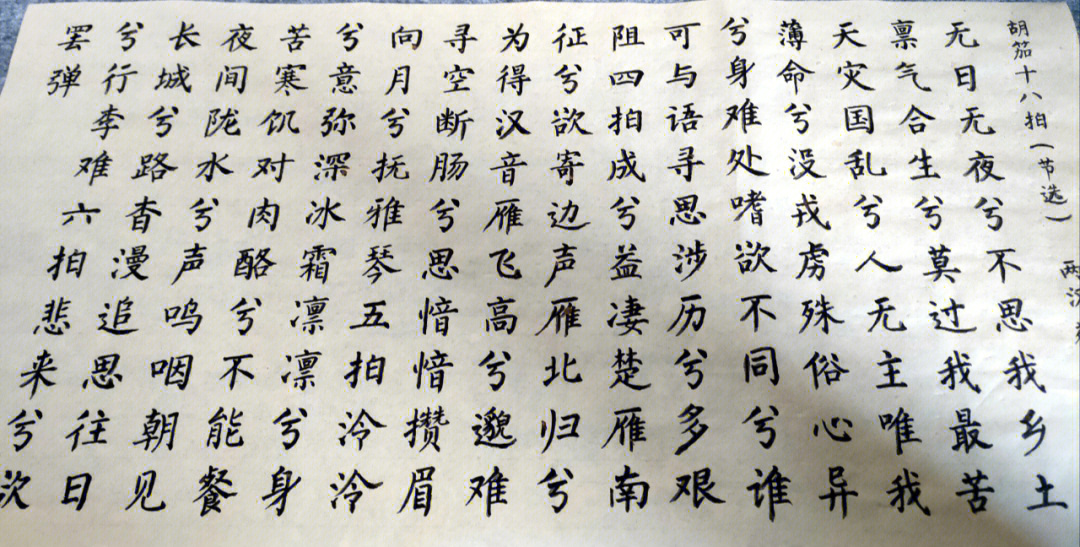 胡笳十八拍（节选）
两汉
无日无夜兮不思我乡土
禀气合生兮莫过我最苦
天灾国乱兮人无主唯我
薄命兮没戎虏殊俗心异
兮身难处嗜欲不同兮谁
可与语寻思涉历兮多艰
阻四拍成兮益凄楚雁南
征兮欲寄边声雁北归兮
为得汉音雁飞高兮邈难
寻空断肠兮思愔愔攒眉
向月兮抚雅琴五拍泠泠
兮意弥深冰霜凛凛兮身
苦寒饥对肉酪兮不能餐
夜间陇水兮声呜咽朝见
长城兮路杳漫追思往日
兮行李难六拍悲来兮欲
罢弹